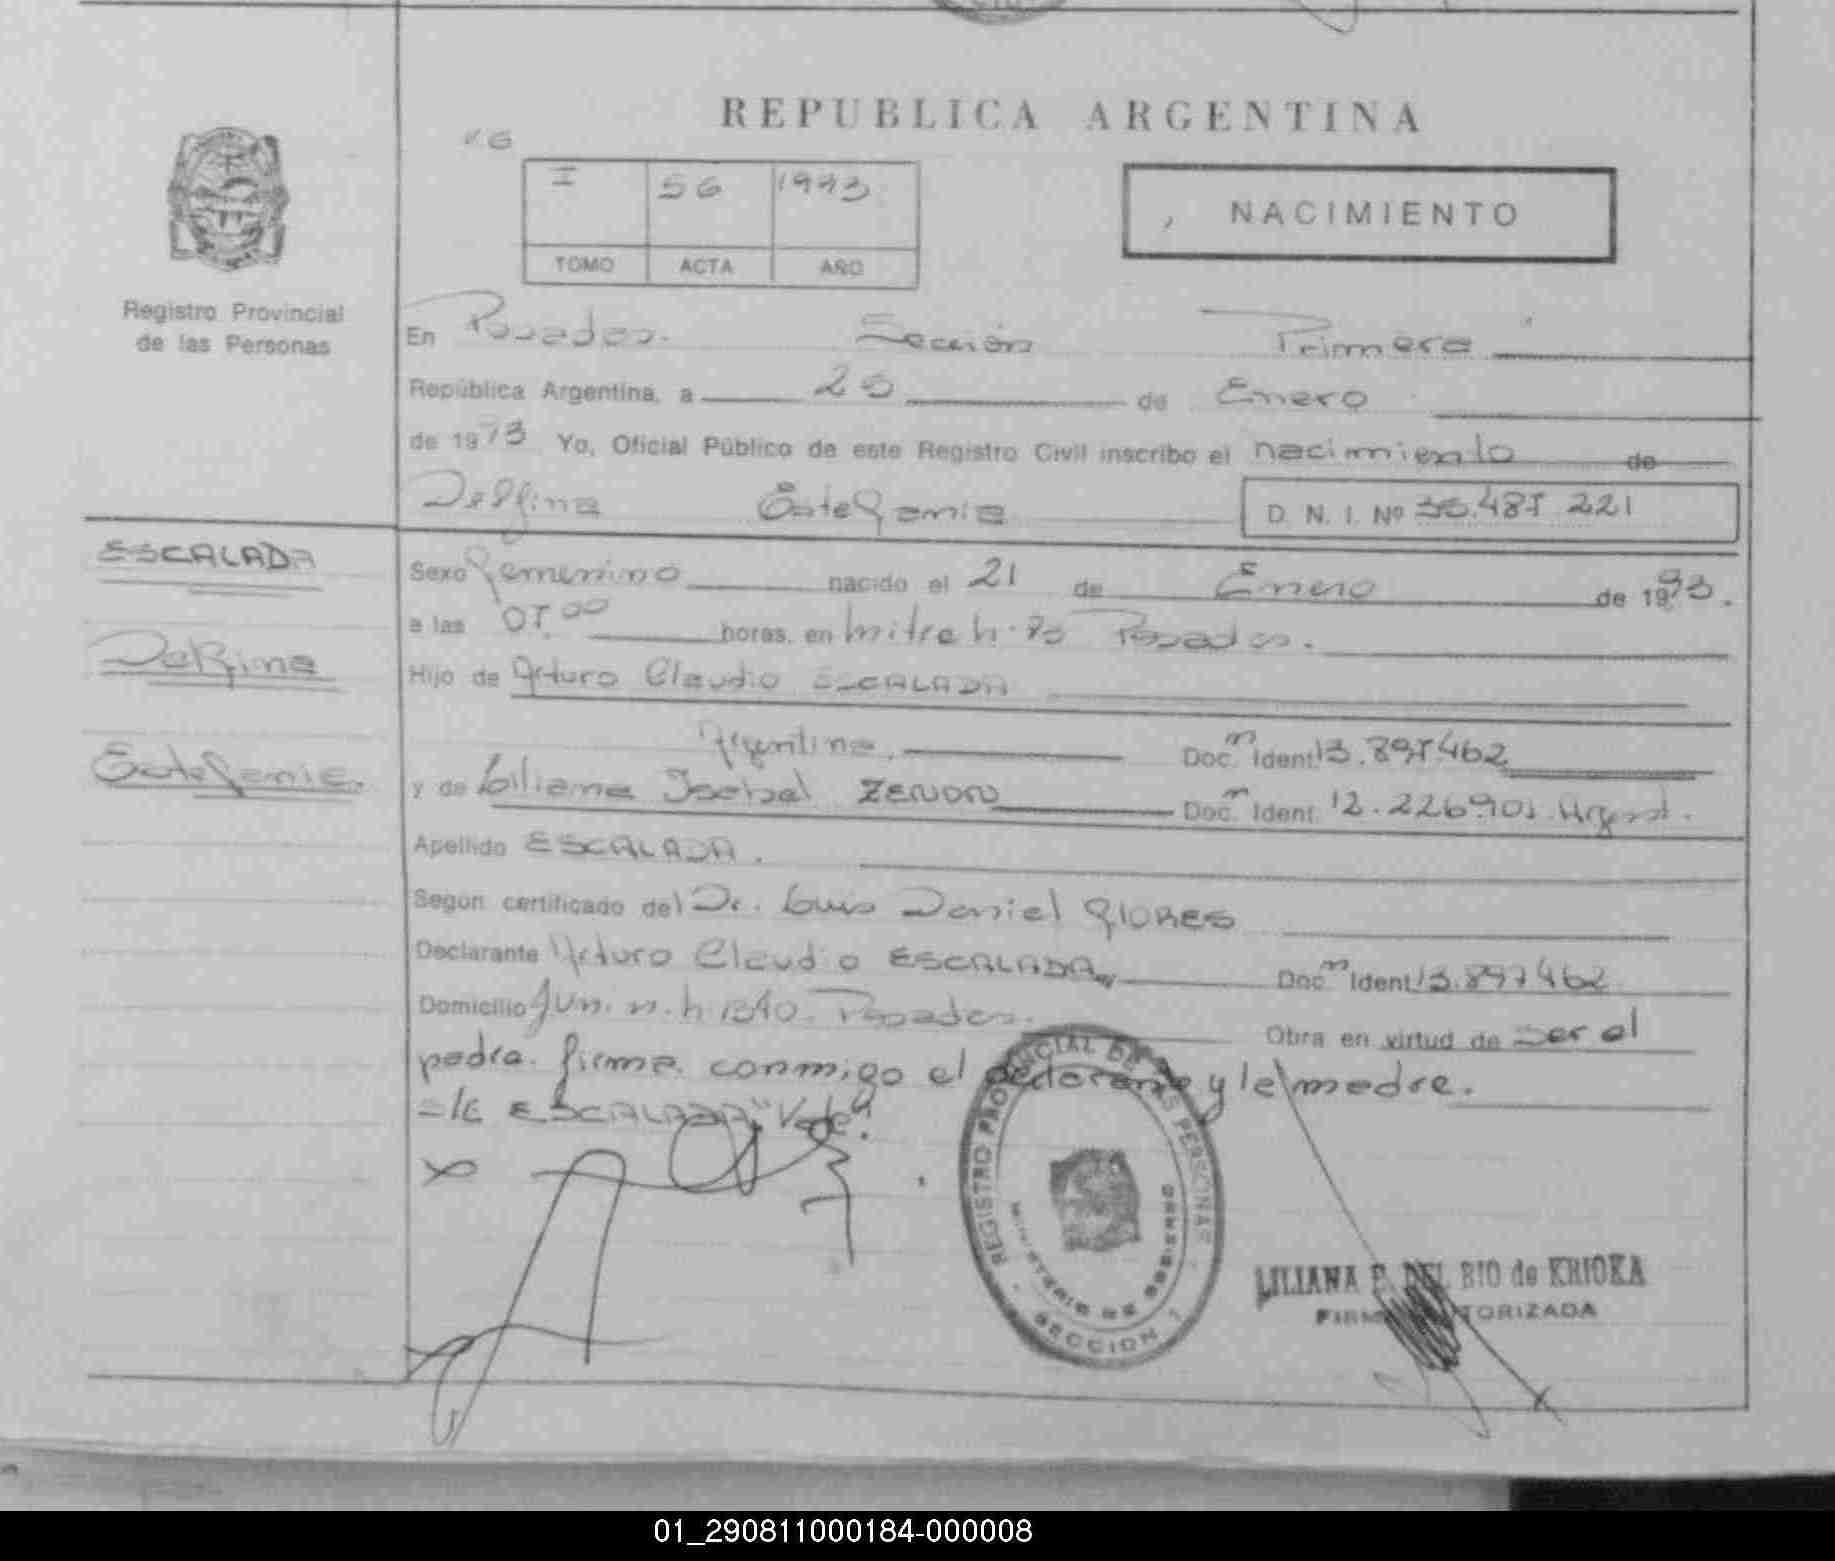 REPUBLICA ARGENTINA
V.G
I 56 1993
TOMO ACTA AÑO
NACIMIENTO
Registro Provincial
de las Personas
En Posadas. Sección Primera
República Argentina, a 25 de Enero
de 1993 Yo, Oficial Público de este Registro Civil inscribo el nacimiento de
Delfina Estefania D. N. I. Nº
ESCALADA
Delfina
Estefania.
Sexo femenino nacido el 21 de Enero de 1993.
a las 07.00 horas, en Mitre Posadas.
Hijo de Arturo Claudio ESCALADA
Argentina. Doc. Ident. 13.897.462
y de Liliana Isabel ZENON Doc. Ident. 12.226.901. Argent.
Apellido ESCALADA.
Según certificado del Dr. Luis Daniel FLORES
Declarante Arturo Claudio ESCALADA Doc. Ident. 13.897.462
Domicilio 1340. Posadas. Obra en virtud de ser el
padre. firma conmigo el declarante y la madre.
ESCALADA "Vale".
REGISTRO PROVINCIAL DE LAS PERSONAS
MINISTERIO DE GOBIERNO
SECCION 1
LILIANA E. DEL RIO de KRIOKA
FIRMA AUTORIZADA
01_290811000184-000008